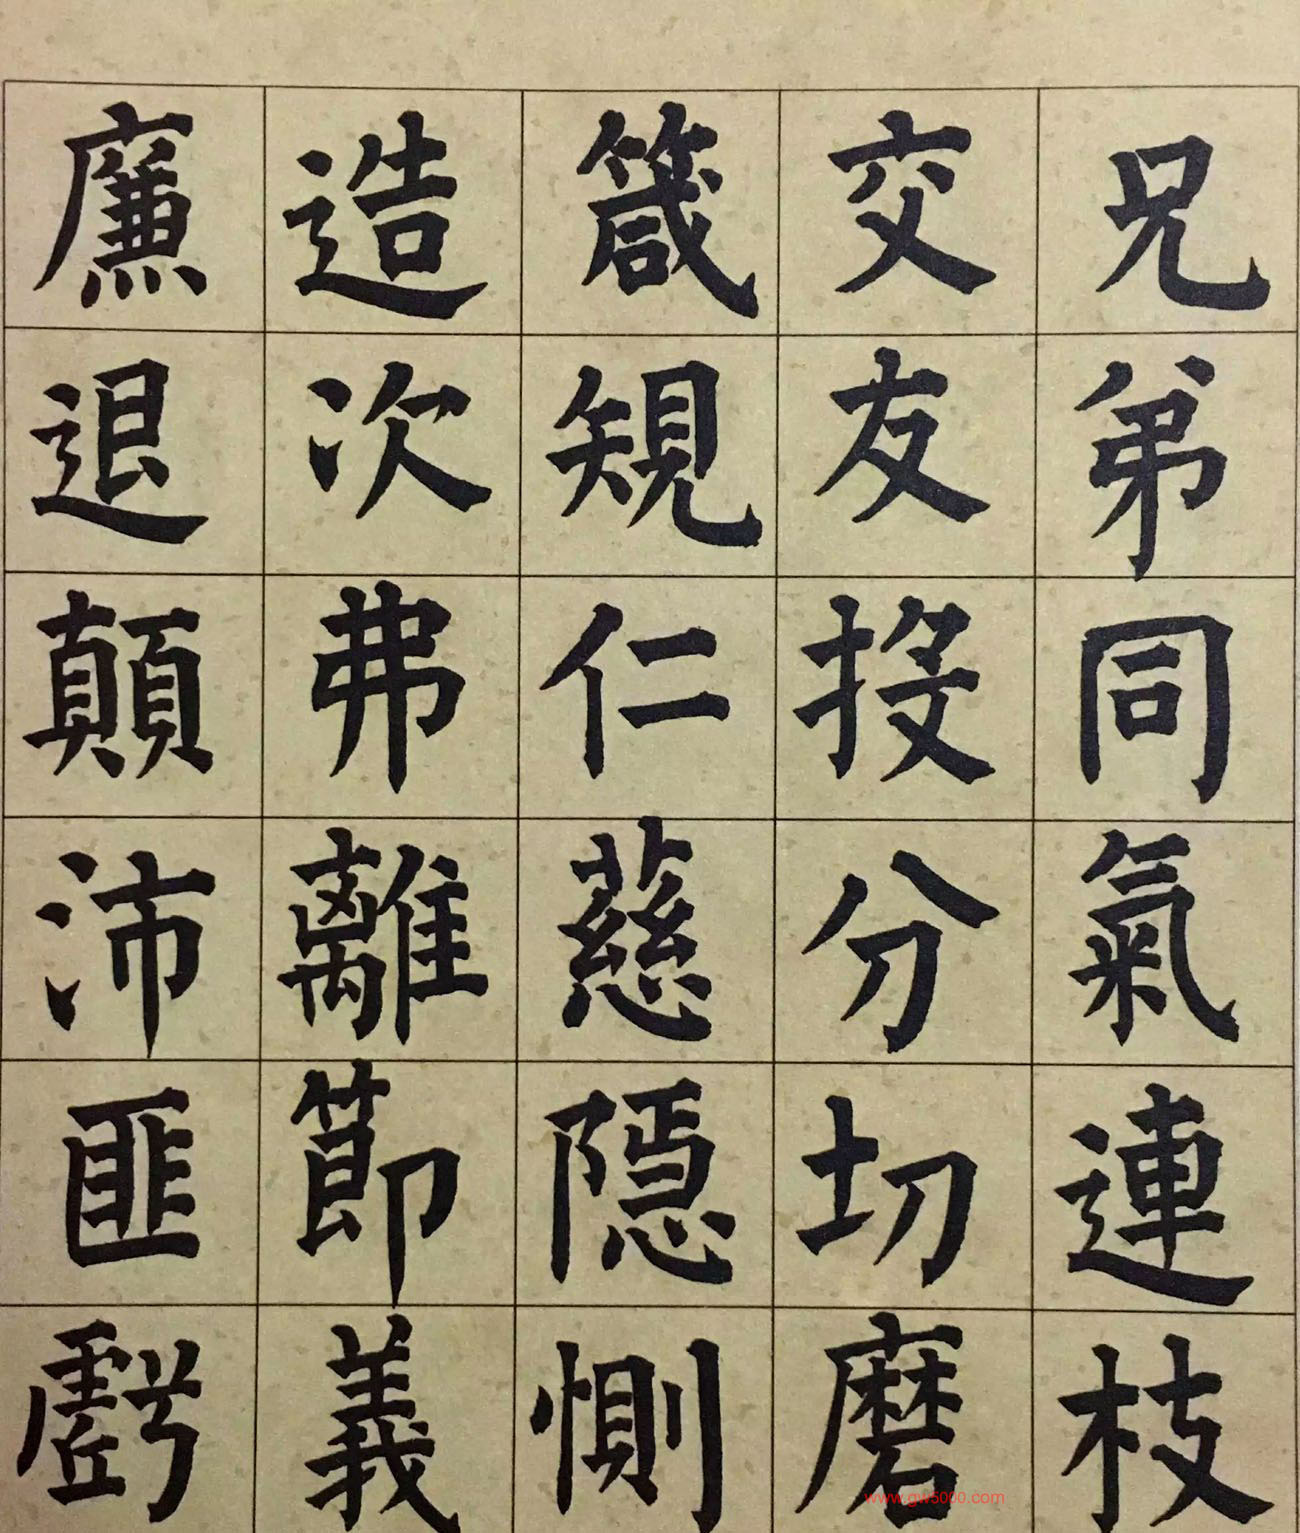 兄弟同氣連枝
交友投分切磨
箴規仁慈隱惻
造次弗離節義
廉退顛沛匪虧
www.gw5000.com